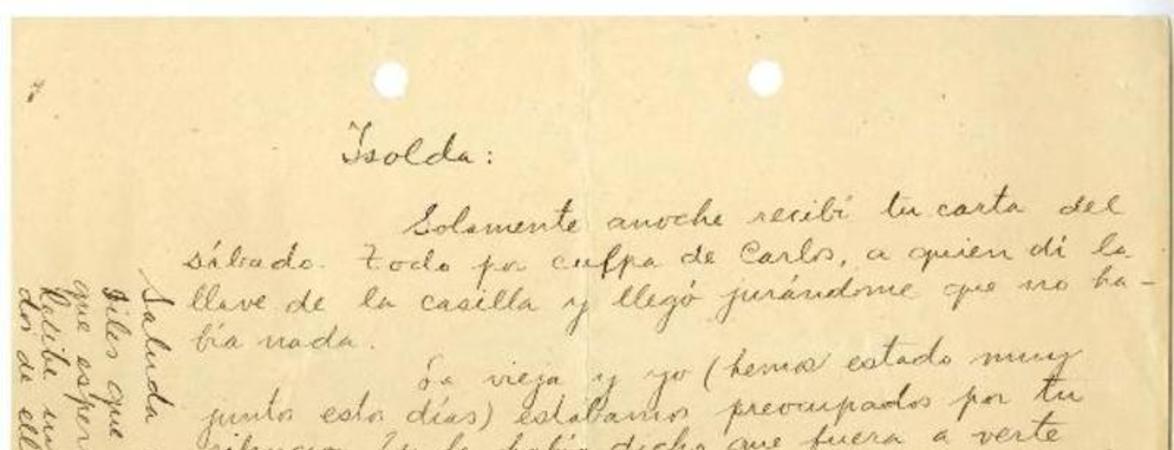 Isolda:
Solamente anoche recibí tu carta del
sábado. Todo por culpa de Carlos, a quien dí la
llave de la casilla y llegó jurándome que no ha-
bía nada.
La vieja y yo (hemos estado muy
juntos estos días) estábamos preocupados por tu
silencio. Yo le había dicho que fuera a verte
Saluda
Diles que
que esper
Recibe un
dos de ell